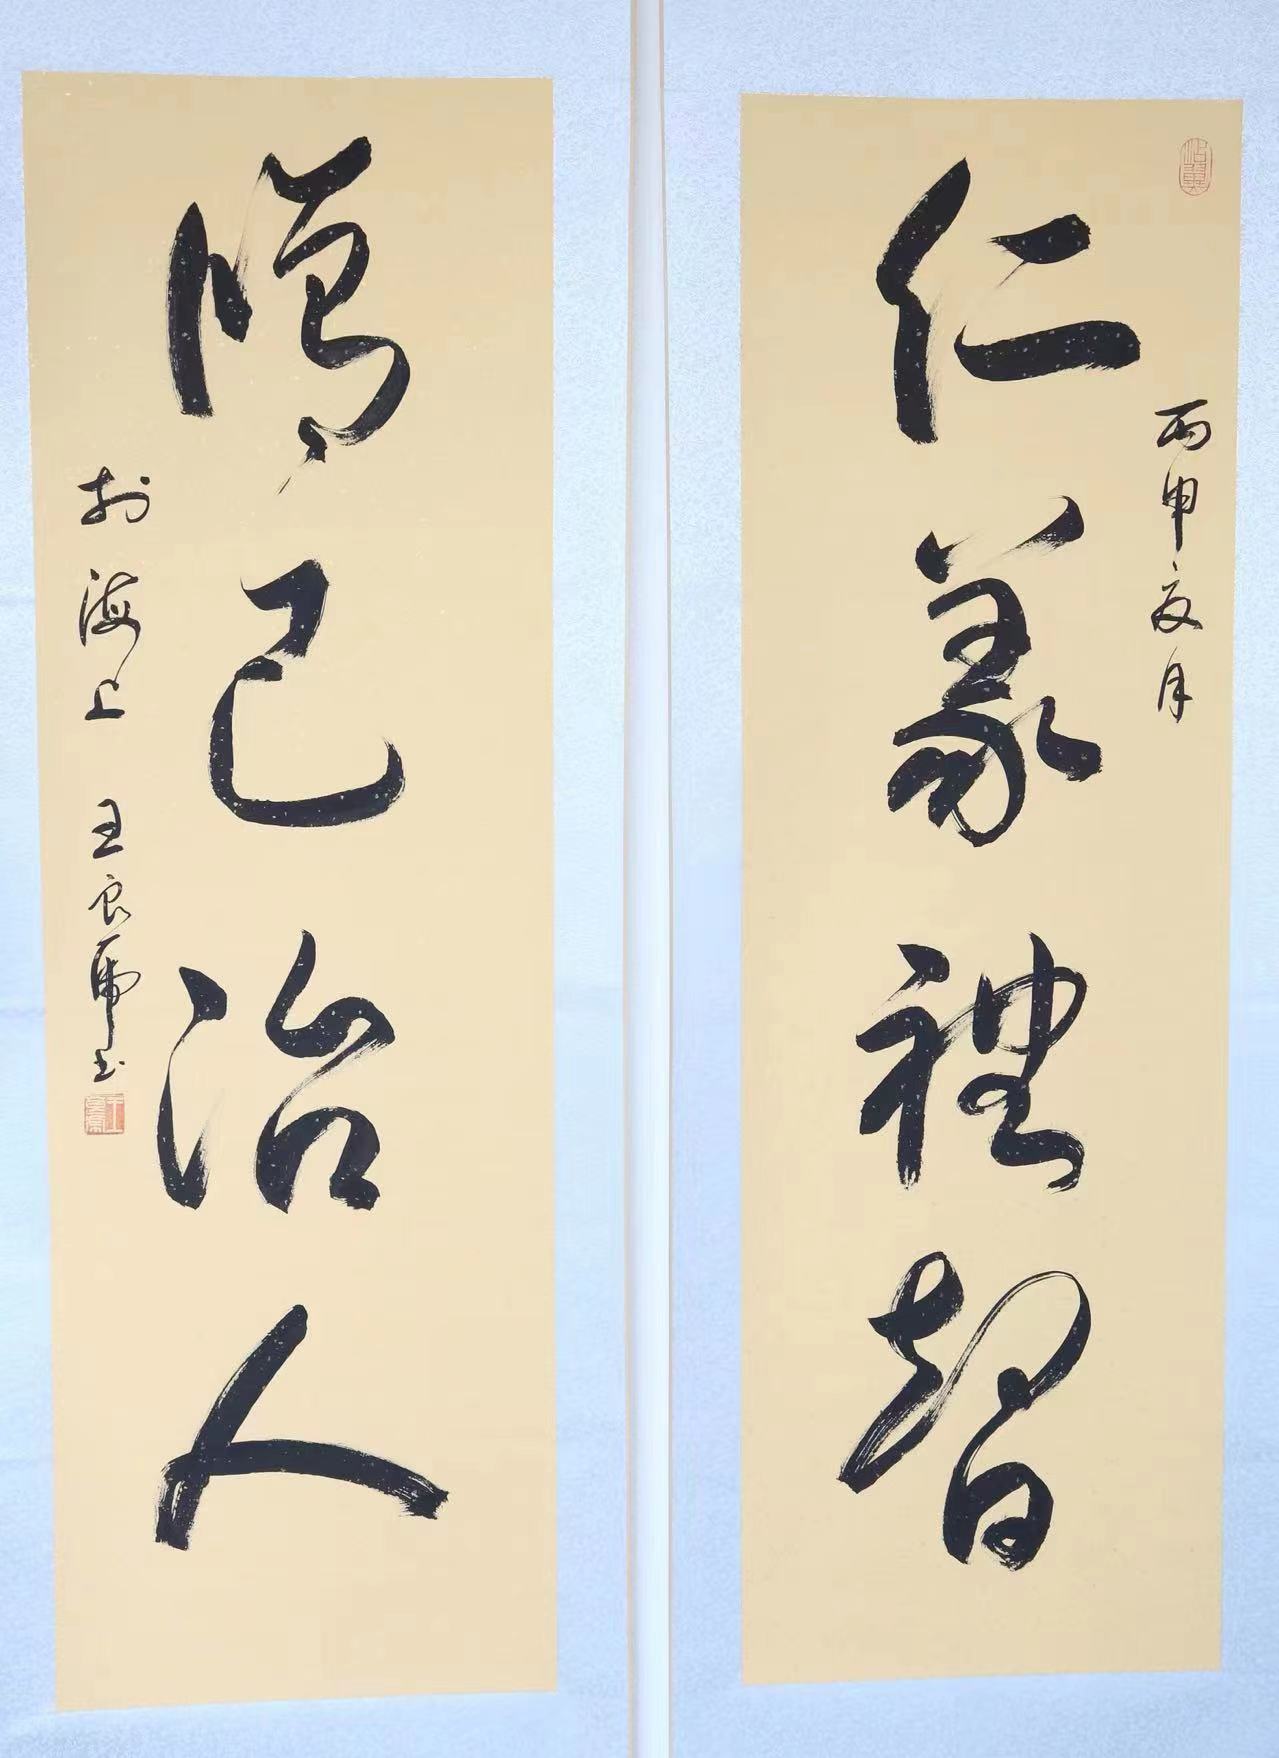 仁義禮智
丙申夏月
脩己治人
於海上 王良虎书